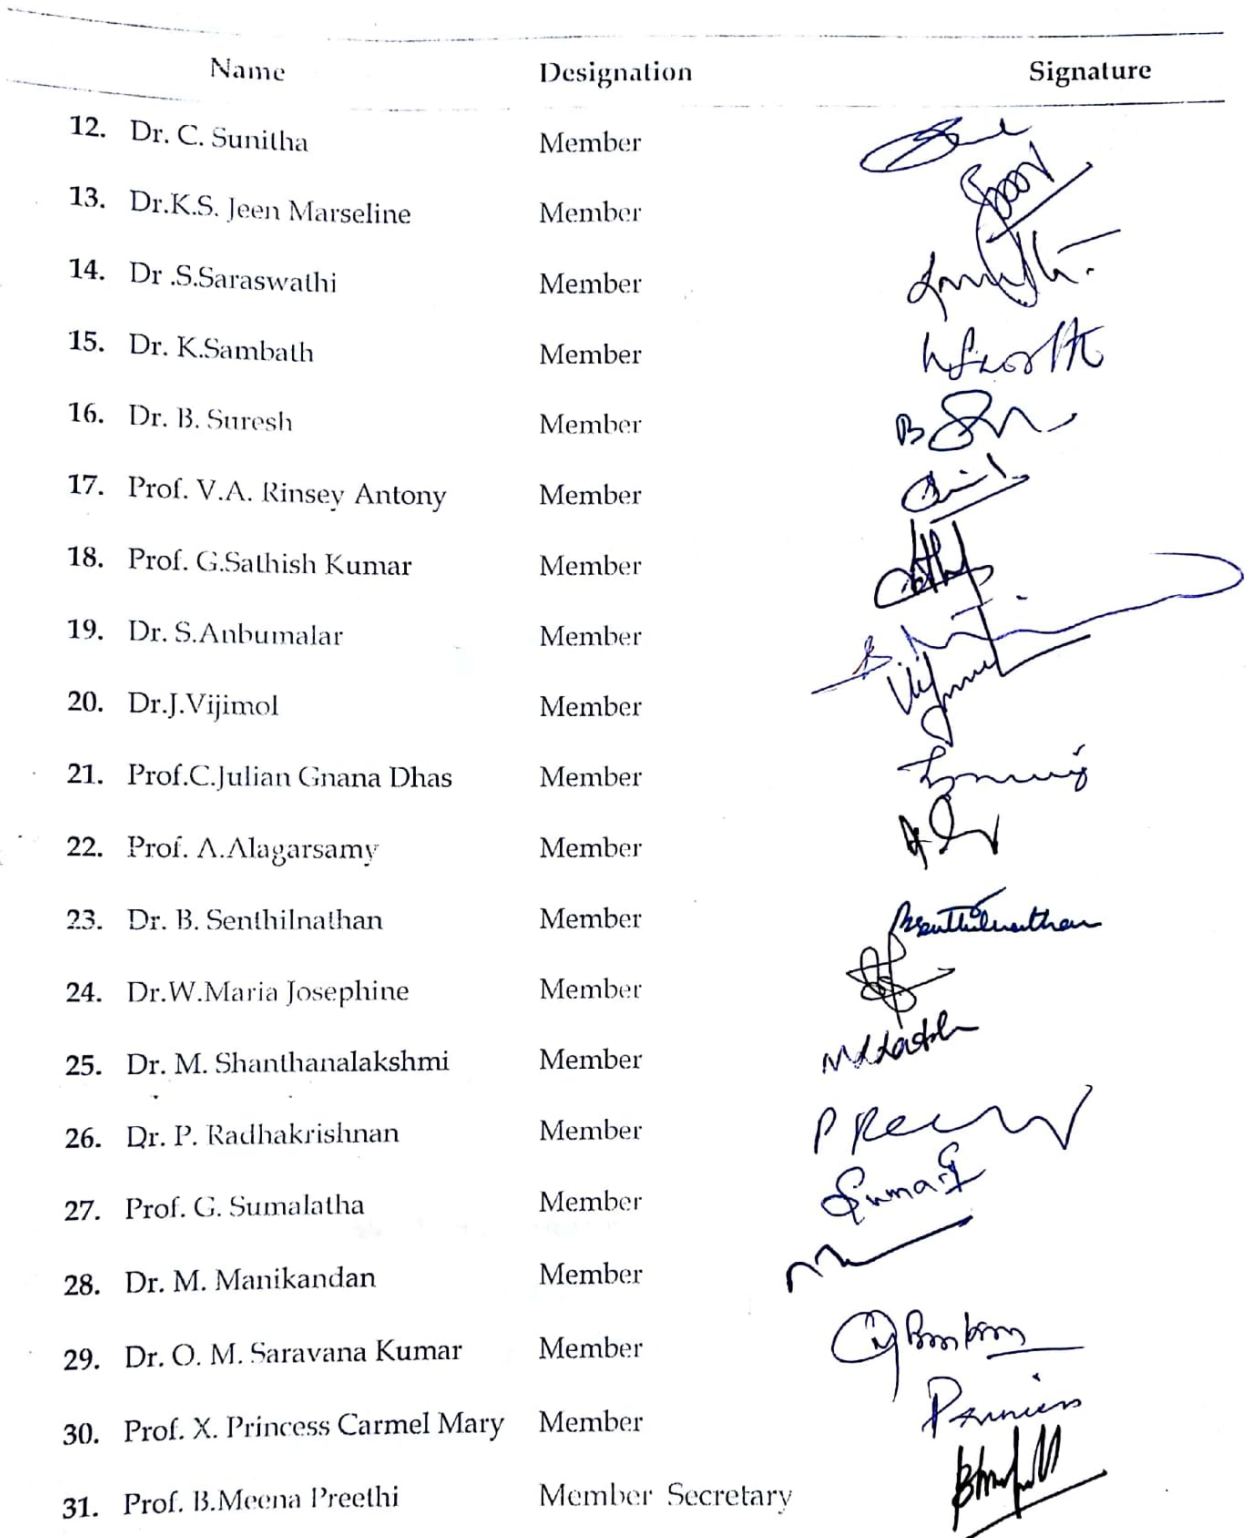 Name Designation Signature
12. Dr. C. Sunitha Member
13. Dr.K.S. Jeen Marseline Member
14. Dr .S.Saraswathi Member
15. Dr. K.Sambath Member
16. Dr. B. Suresh Member
17. Prof. V.A. Rinsey Antony Member
18. Prof. G.Sathish Kumar Member
19. Dr. S.Anbumalar Member
20. Dr.J.Vijimol Member
21. Prof.C.Julian Gnana Dhas Member
22. Prof. A.Alagarsamy Member
23. Dr. B. Senthilnathan Member BSenthilnathan
24. Dr.W.Maria Josephine Member
25. Dr. M. Shanthanalakshmi Member
26. Dr. P. Radhakrishnan Member
27. Prof. G. Sumalatha Member Suma.G
28. Dr. M. Manikandan Member
29. Dr. O. M. Saravana Kumar Member
30. Prof. X. Princess Carmel Mary Member
31. Prof. B.Meena Preethi Member Secretary